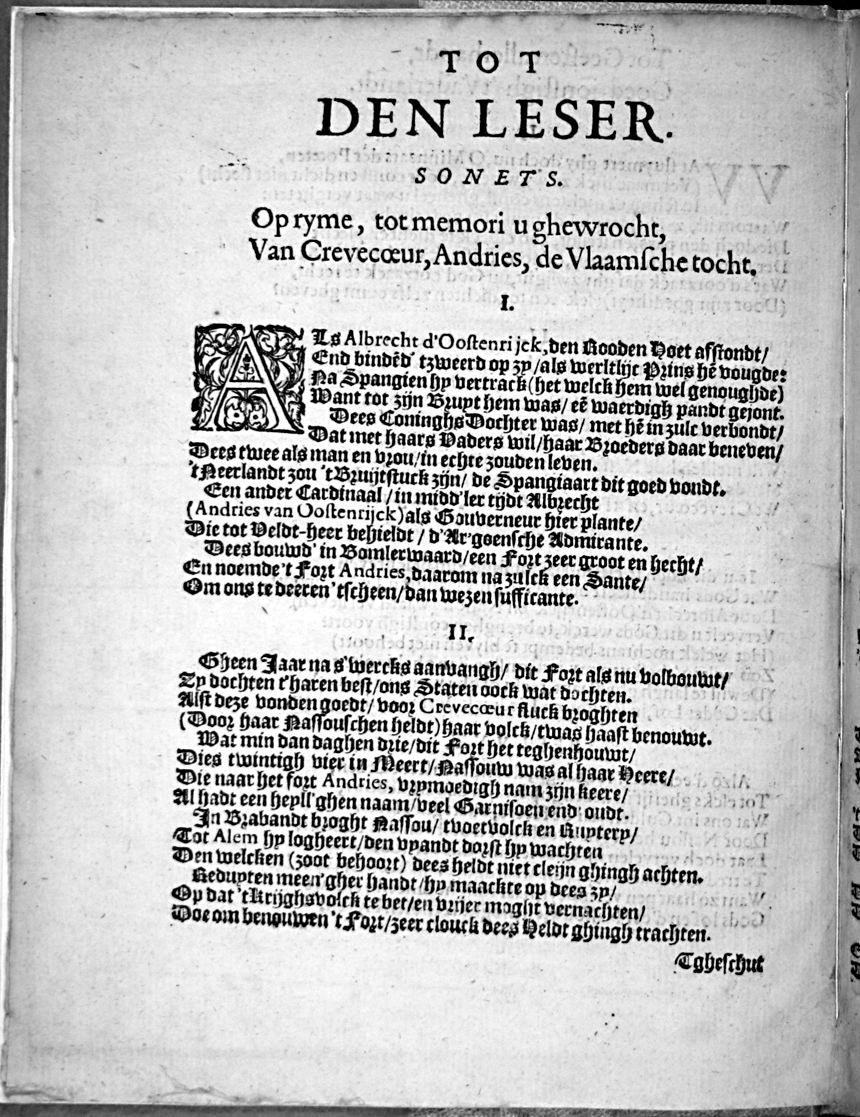 TOT
DEN LESER.
SONETS.
Op ryme, tot memori u ghewrocht,
Van Crevecœur, Andries, de Vlaamſche tocht.
I.
ALs Albrecht d'Ooſtenrijck, den Rooden Hoet afſtondt/
End bindẽd' tzweerd op zy/als werltlijc Prins hẽ vougde:
Na Spangien hy vertrack (het welck hem wel genoughde)
Want tot zijn Bruyt hem was/ eẽ waerdigh pandt gejont.
Dees Coninghs Dochter was/ met hẽ in zulc verbondt/
Dat met haars Vaders wil/haar Broeders daar beneven/
Dees twee als man en vrou/in echte zouden leven.
't Neerlandt zou 't Bruijtſtuck zijn/ de Spangiaart dit goed vondt.
Een ander Cardinaal/in midd'ler tijdt Albrecht
(Andries van Ooſtenrijck) als Gouverneur hier plante/
Die tot Veldt-heer behieldt/ d'Ar'goenſche Admirante.
Dees bouwd' in Bomlerwaard/een Fort zeer groot en hecht/
En noemde't Fort Andries, daarom na zulck een Sante/
Om ons te deeren 'tſcheen/dan wezen ſufficante.
II.
Gheen Jaar na s'wercks aanvangh/ dit Fort als nu volbouwt/
Zy dochten t'haren beſt/ons Staten oock wat dochten.
Alſt deze vonden goedt/ voor Crevecœur ſluck broghten
(Door haar Naſſouſchen heldt) haar volck/twas haaſt benouwt.
Wat min dan daghen drie/dit Fort het teghenhouwt/
Dies twintigh vier in Meert/Naſſouw was al haar Heere/
Die naar het fort Andries, vrymoedigh nam zijn keere/
Al hadt een heyll'ghen naam/veel Garniſoen end' oudt.
In Brabandt broght Naſſou/ tvoetvolck en Ruytery/
Tot Alem hy logheert/den vyandt dorſt hy wachten
Den welcken (zoot behoort) dees heldt niet cleijn ghingh achten.
Reduyten meen'gher handt/hy maackte op dees zy/
Op dat 't krijghsvolck te bet/en vrijer moght vernachten/
Doe om benouwen 't Fort/zeer clouck dees Heldt ghingh trachten.
Tgheſchut